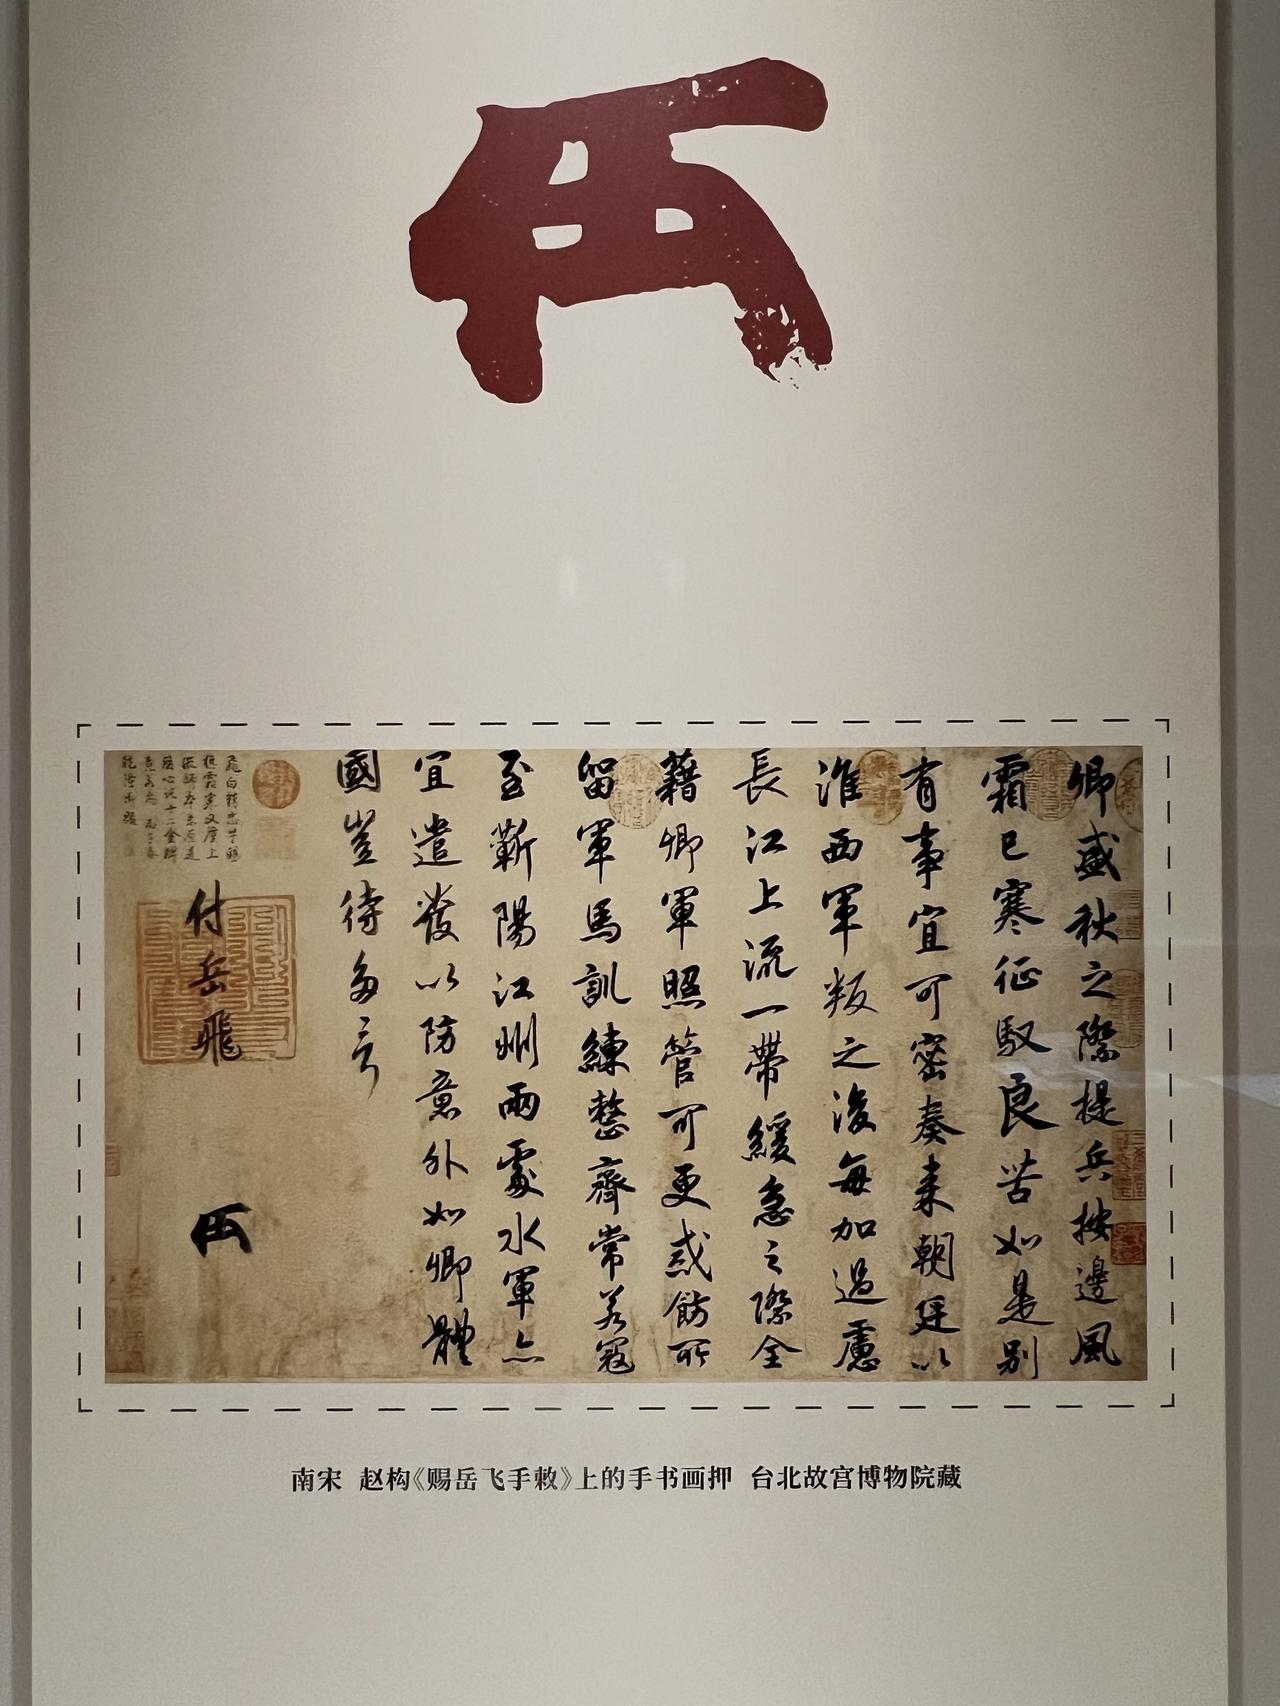 卿盛秋之際提兵按邊風
霜已寒征馭良苦如是別
有事宜可密奏来朝廷以
淮西軍叛之後每加過慮
長江上流一帶緩急之際全
藉卿軍照管可更戒飭所
留軍馬訓練整齊常若寇
至蘄陽江州兩處水軍亦
宜遣發以防意外如卿體
國豈待多言
付岳飛
南宋 赵构《赐岳飞手敕》上的手书画押 台北故宫博物院藏